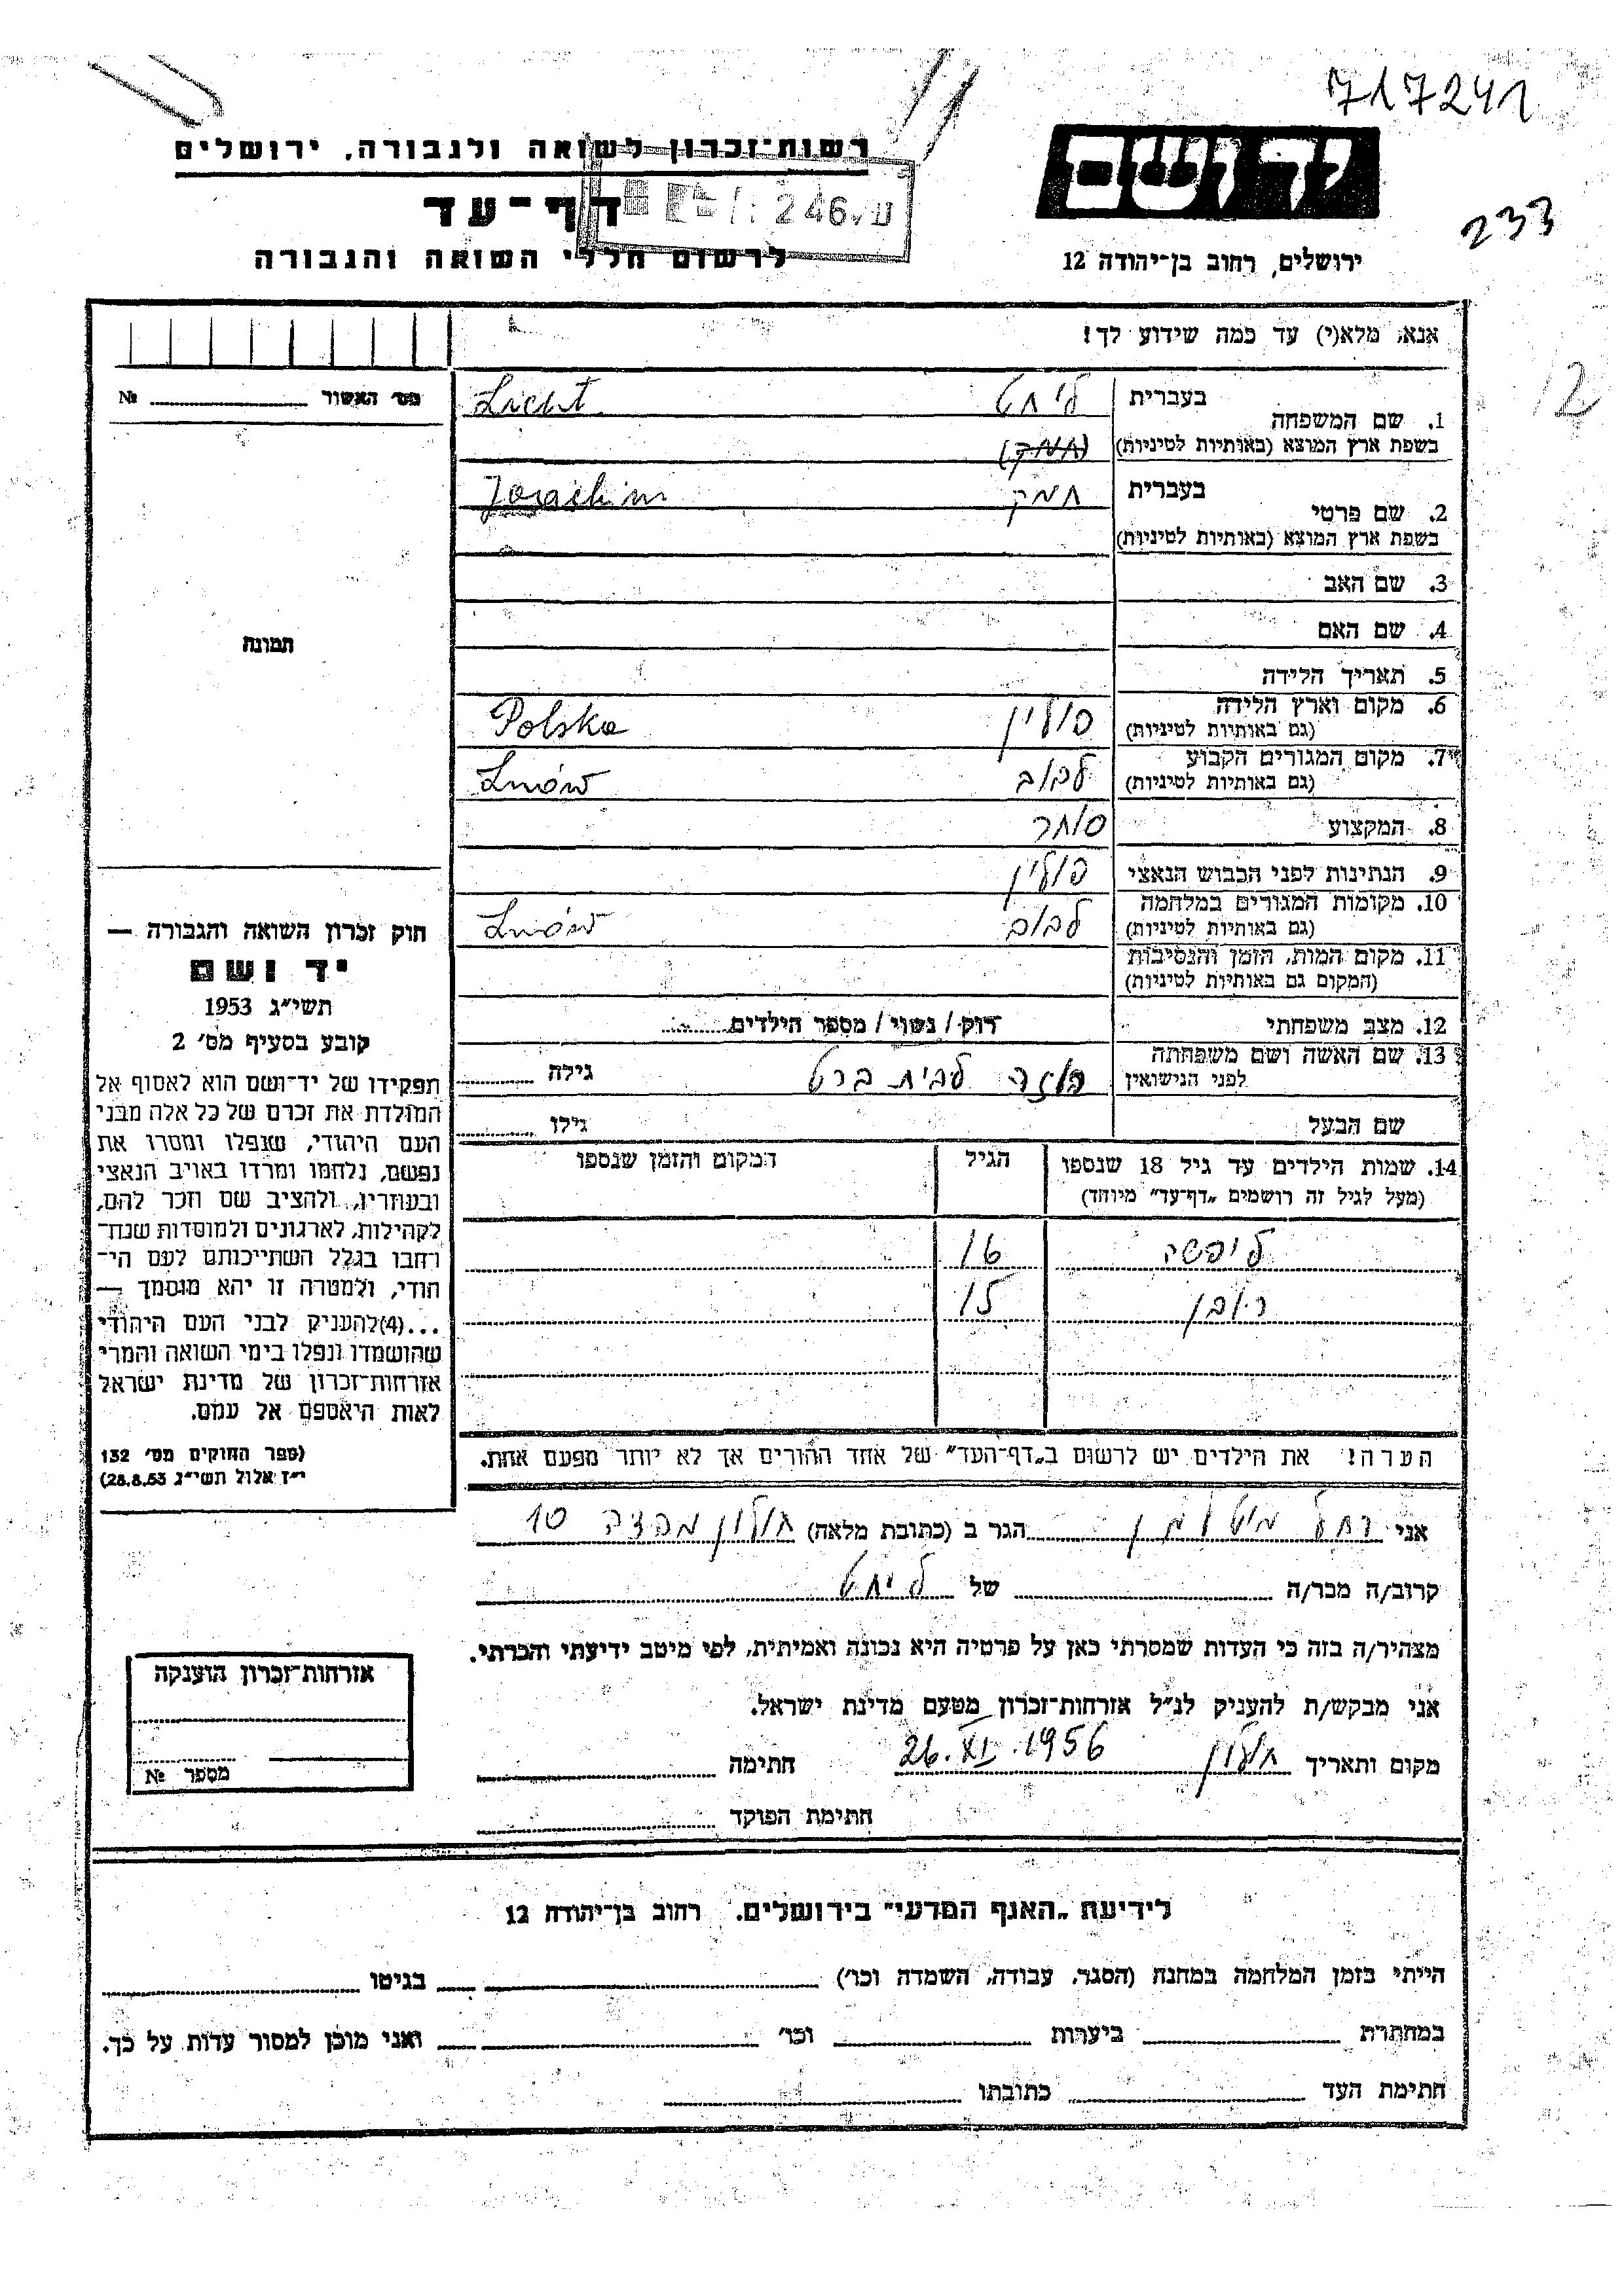 717241
רשות־זכרון לשואה ולגבורה, ירושלים
יד ושם
דף־עד
246
ע/
233
לרשום חללי השואה והגבורה
ירושלים, רחוב בן־יהודה 12
אנא, מלא(י) עד כמה שידוע לך!
12
מס׳ האשור № 
1. שם המשפחה
בעברית ליחט Licht
בשפת ארץ המוצא (באותיות לטיניות)
2. שם פרטי
בעברית
בשפת ארץ המוצא (באותיות לטיניות)
3. שם האב
4. שם האם
תמונה
5. תאריך הלידה
6. מקום וארץ הלידה פולין Polska
(גם באותיות לטיניות)
7. מקום המגורים הקבוע לבוב Lwów
(גם באותיות לטיניות)
8. המקצוע סוחר
9. הנתינות לפני הכבוש הנאצי פולין
10. מקומות המגורים במלחמה לבוב Lwów
(גם באותיות לטיניות)
11. מקום המות, הזמן והנסיבות
(המקום גם באותיות לטיניות)
12. מצב משפחתי רווק / נשוי / מספר הילדים
13. שם האשה ושם משפחתה
לפני הנישואין לבית ברט גילה
שם הבעל גילו
14. שמות הילדים עד גיל 18 שנספו הגיל המקום והזמן שנספו
(מעל לגיל זה רושמים „דף־עד״ מיוחד)
ליפשה 16
ראובן 15
הערה! את הילדים יש לרשום ב„דף־העד״ של אחד ההורים אך לא יותר מפעם אחת.
חוק זכרון השואה והגבורה —
יד ושם
תשי״ג 1953
קובע בסעיף מס׳ 2
תפקידו של יד־ושם הוא לאסוף אל
המולדת את זכרם של כל אלה מבני
העם היהודי, שנפלו ומסרו את
נפשם, נלחמו ומרדו באויב הנאצי
ובעוזריו, ולהציב שם וזכר להם,
לקהילות, לארגונים ולמוסדות שנח־
רחבו בגלל השתייכותם לעם הי־
הודי, ולמטרה זו יהא מוסמך —
...(4)להעניק לבני העם היהודי
שהושמדו ונפלו בימי השואה והמרי
אזרחות־זכרון של מדינת ישראל
לאות היאספם אל עמם.
(ספר החוקים מס׳ 132
י״ז אלול תשי״ג 28.8.53)
אני רחל הגר ב (כתובת מלאה) חולון 10
קרוב/ה מכר/ה של ליחט
מצהיר/ה בזה כי העדות שמסרתי כאן על פרטיה היא נכונה ואמיתית, לפי מיטב ידיעתי והכרתי.
אני מבקש/ת להעניק לנ״ל אזרחות־זכרון מטעם מדינת ישראל.
מקום ותאריך חולון 26.XI.1956 חתימה
חתימת הפוקד
אזרחות־זכרון הוענקה
מספר №
לידיעת „האגף המדעי״ בירושלים, רחוב בן־יהודה 12
הייתי בזמן המלחמה במחנה (הסגר, עבודה, השמדה וכו׳) בגיטו
במחתרת ביערות וכו׳ ואני מוכן למסור עדות על כך.
חתימת העד כתובתו